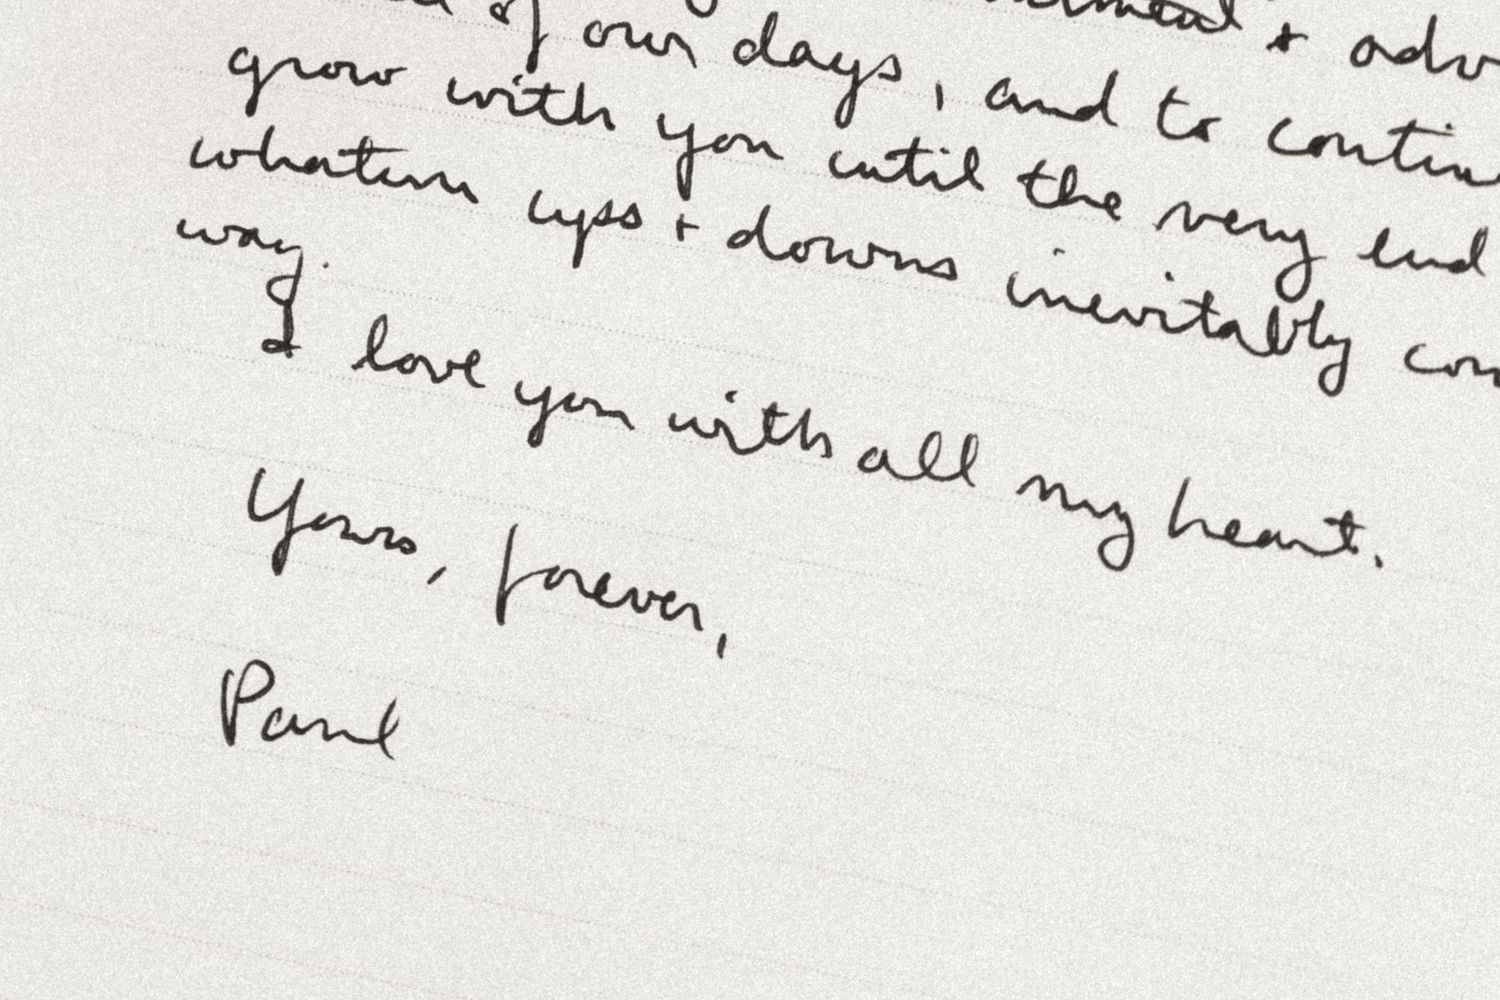 + adv
of our days, and to contin
grow with you until the very end
whatever ups + downs inevitably com
way.
I love you with all my heart.
Yours, forever,
Paul